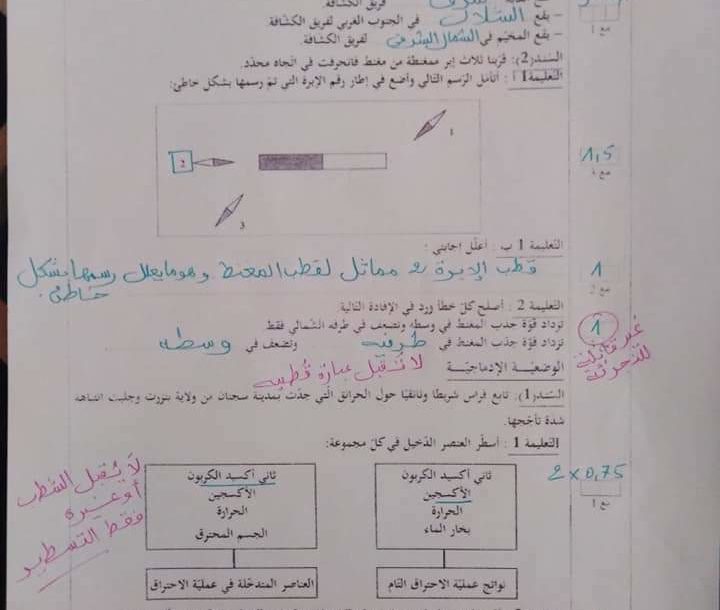 فريق الكشافة.
– يقع الشلال في الجنوب الغربي لفريق الكشافة
– يقع المخيّم في الشمال الشرقي لفريق الكشافة.
مع 1
السند(2): قرّبنا ثلاث إبر ممغنطة من مغنط فانحرفت في اتجاه محدّد.
التعليمة 1 أ : أتأمّل الرّسم التّالي وأضع في إطار رقم الإبرة التي تمّ رسمها بشكل خاطئ:
1
2
3
1,5
التعليمة 1 ب : أعلّل إجابتي :
قطب الإبرة 2 مماثل لقطب المغنط وهو ما يعلل رسمها بشكل خاطئ.
1
مع 2
التعليمة 2 : أصلح كلّ خطأ ورد في الإفادة التالية
تزداد قوّة جذب المغنط في وسطه وتضعف في طرفه الشّمالي فقط
تزداد قوّة جذب المغنط في طرفيه وتضعف في وسطه
1
غير قابلة للتجزئة
لا تُقبل عبارة قُطبيه
الوضعيّة الإدماجيّة
السّند(1): تابع فراس شريطا وثائقيا حول الحرائق الّتي جدّت بمدينة سجنان من ولاية بنزرت وجلبت انتباهه
شدة تأججها.
التعليمة 1 : أسطّر العنصر الدّخيل في كلّ مجموعة:
2 × 0,75
مع 1
ثاني أكسيد الكربون
الأكسجين
الحرارة
بخار الماء
نواتج عمليّة الاحتراق التّام
ثاني أكسيد الكربون
الأكسجين
الحرارة
الجسم المحترق
العناصر المتدخّلة في عمليّة الاحتراق
لا يُقبل الشطب
أو غيره
فقط التسطير